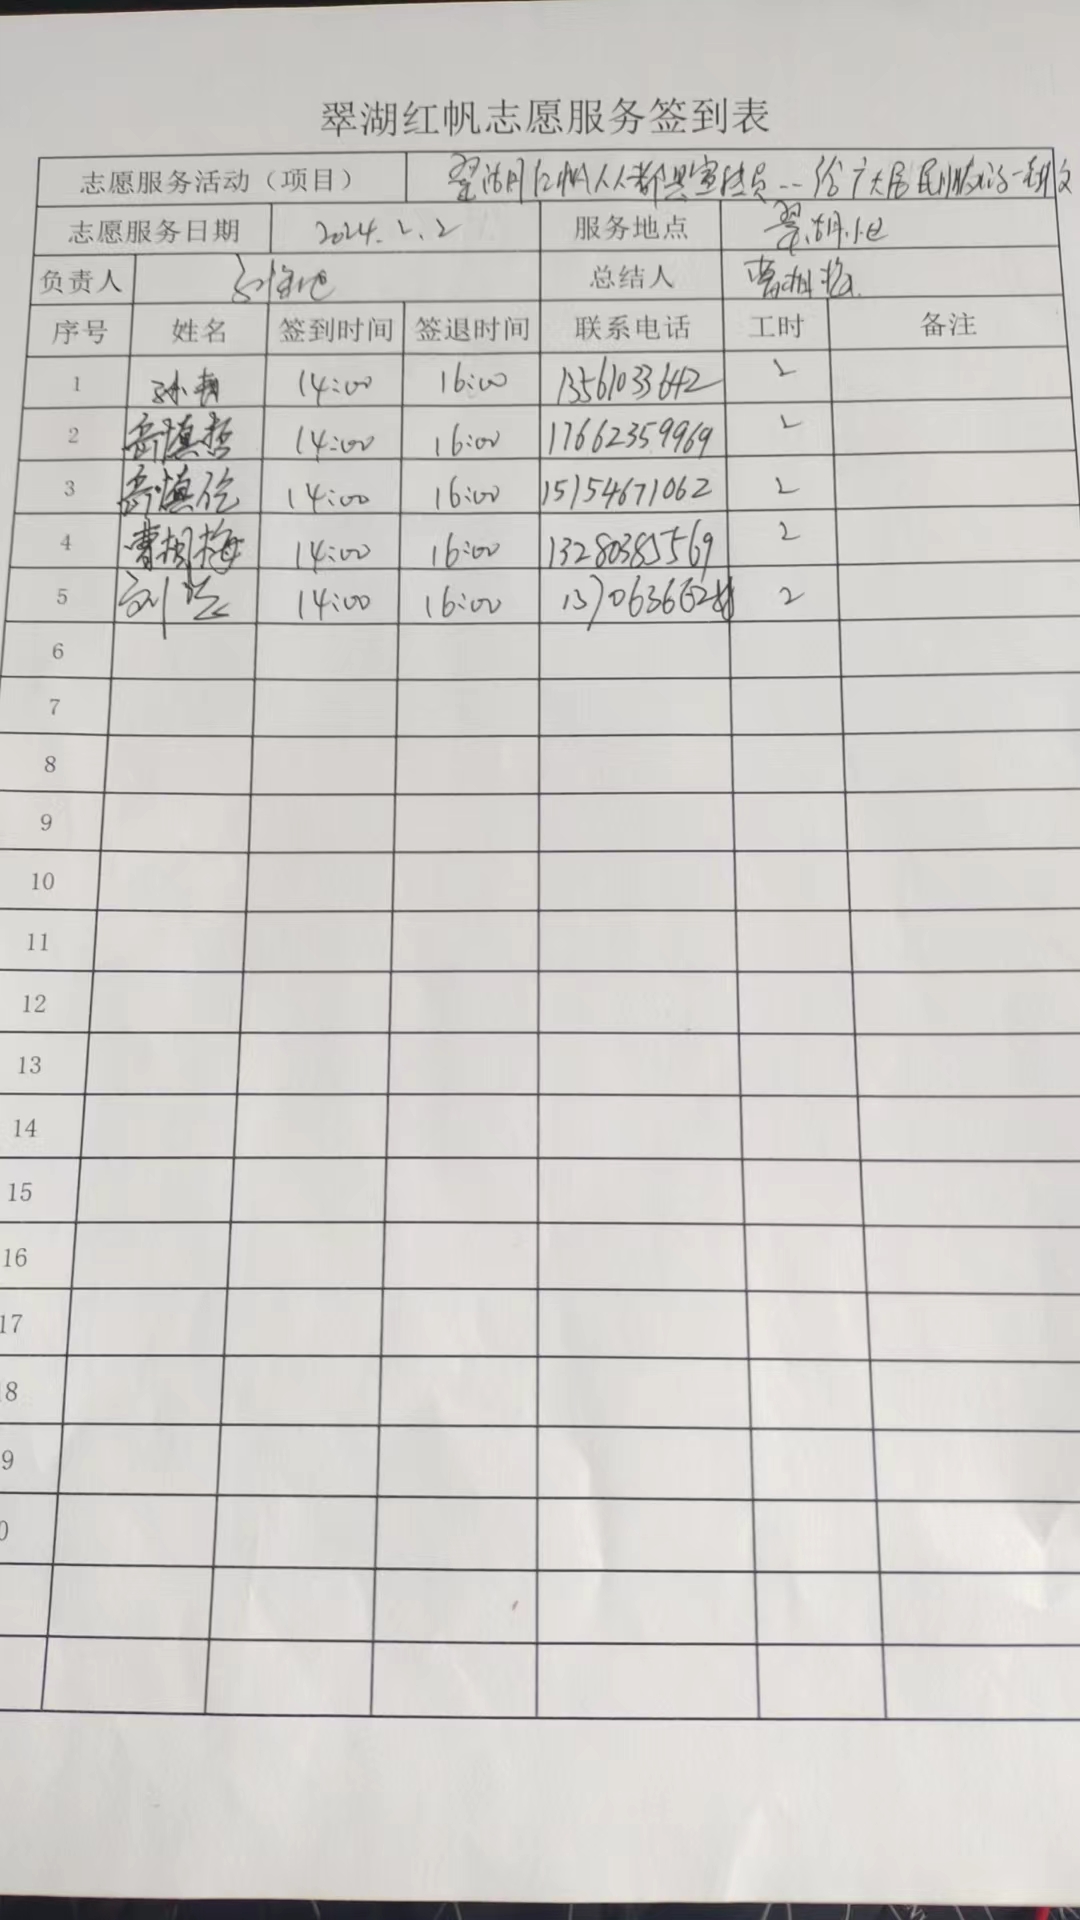 翠湖红帆志愿服务签到表
志愿服务活动（项目） 翠湖红帆人人都是宣传员--给广大居民
志愿服务日期 2024.2.2 服务地点 翠湖
负责人 总结人 曹树梅
序号 姓名 签到时间 签退时间 联系电话 工时 备注
1 孙 14:00 16:00 13561033642 2
2 高慎哲 14:00 16:00 17662359969 2
3 高慎伦 14:00 16:00 15154671062 2
4 曹树梅 14:00 16:00 13280385569 2
5 刘 14:00 16:00 2
6
7
8
9
10
11
12
13
14
15
16
17
8
9
0